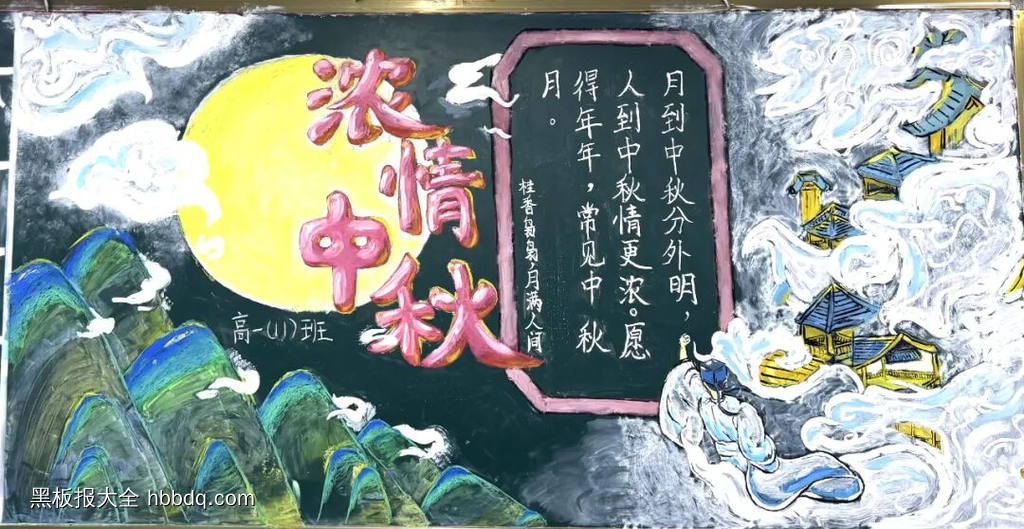 浓情中秋
月到中秋分外明，
人到中秋情更浓。愿
得年年，常见中秋
月。
桂香袅袅，月满人间
高一（11）班
黑板报大全 hbbdq.com